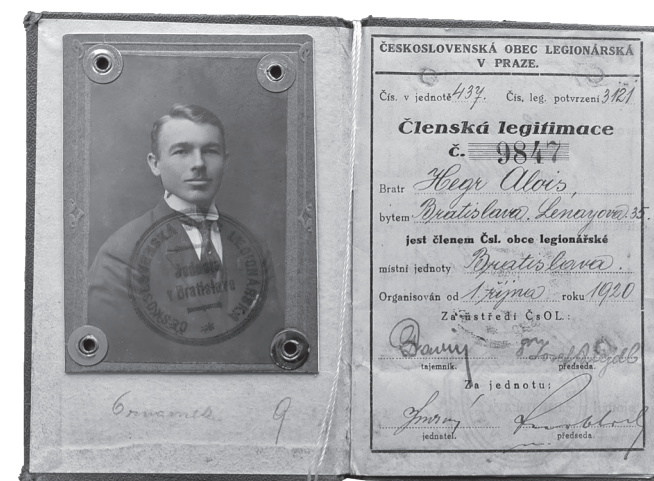 ČESKOSLOVENSKÁ OBEC LEGIONÁRSKÁ
V PRAZE.
Čís. v jednotě 437. Čís. leg. potvrzení 3121
Členská legitimace
č. 9847
Bratr Hegr Alois,
bytem Bratislava. Lenayova 35.
jest členem Čsl. obce legionářské
místní jednoty Bratislava.
Organisován od 1. října roku 1920
Za ústředí ČsOL.:
tajemník. předseda.
Za jednotu:
jednatel. předseda
ČESKOSLOVENSKÁ OBEC LEGIONÁŘSKÁ
Jednota
v Bratislavě